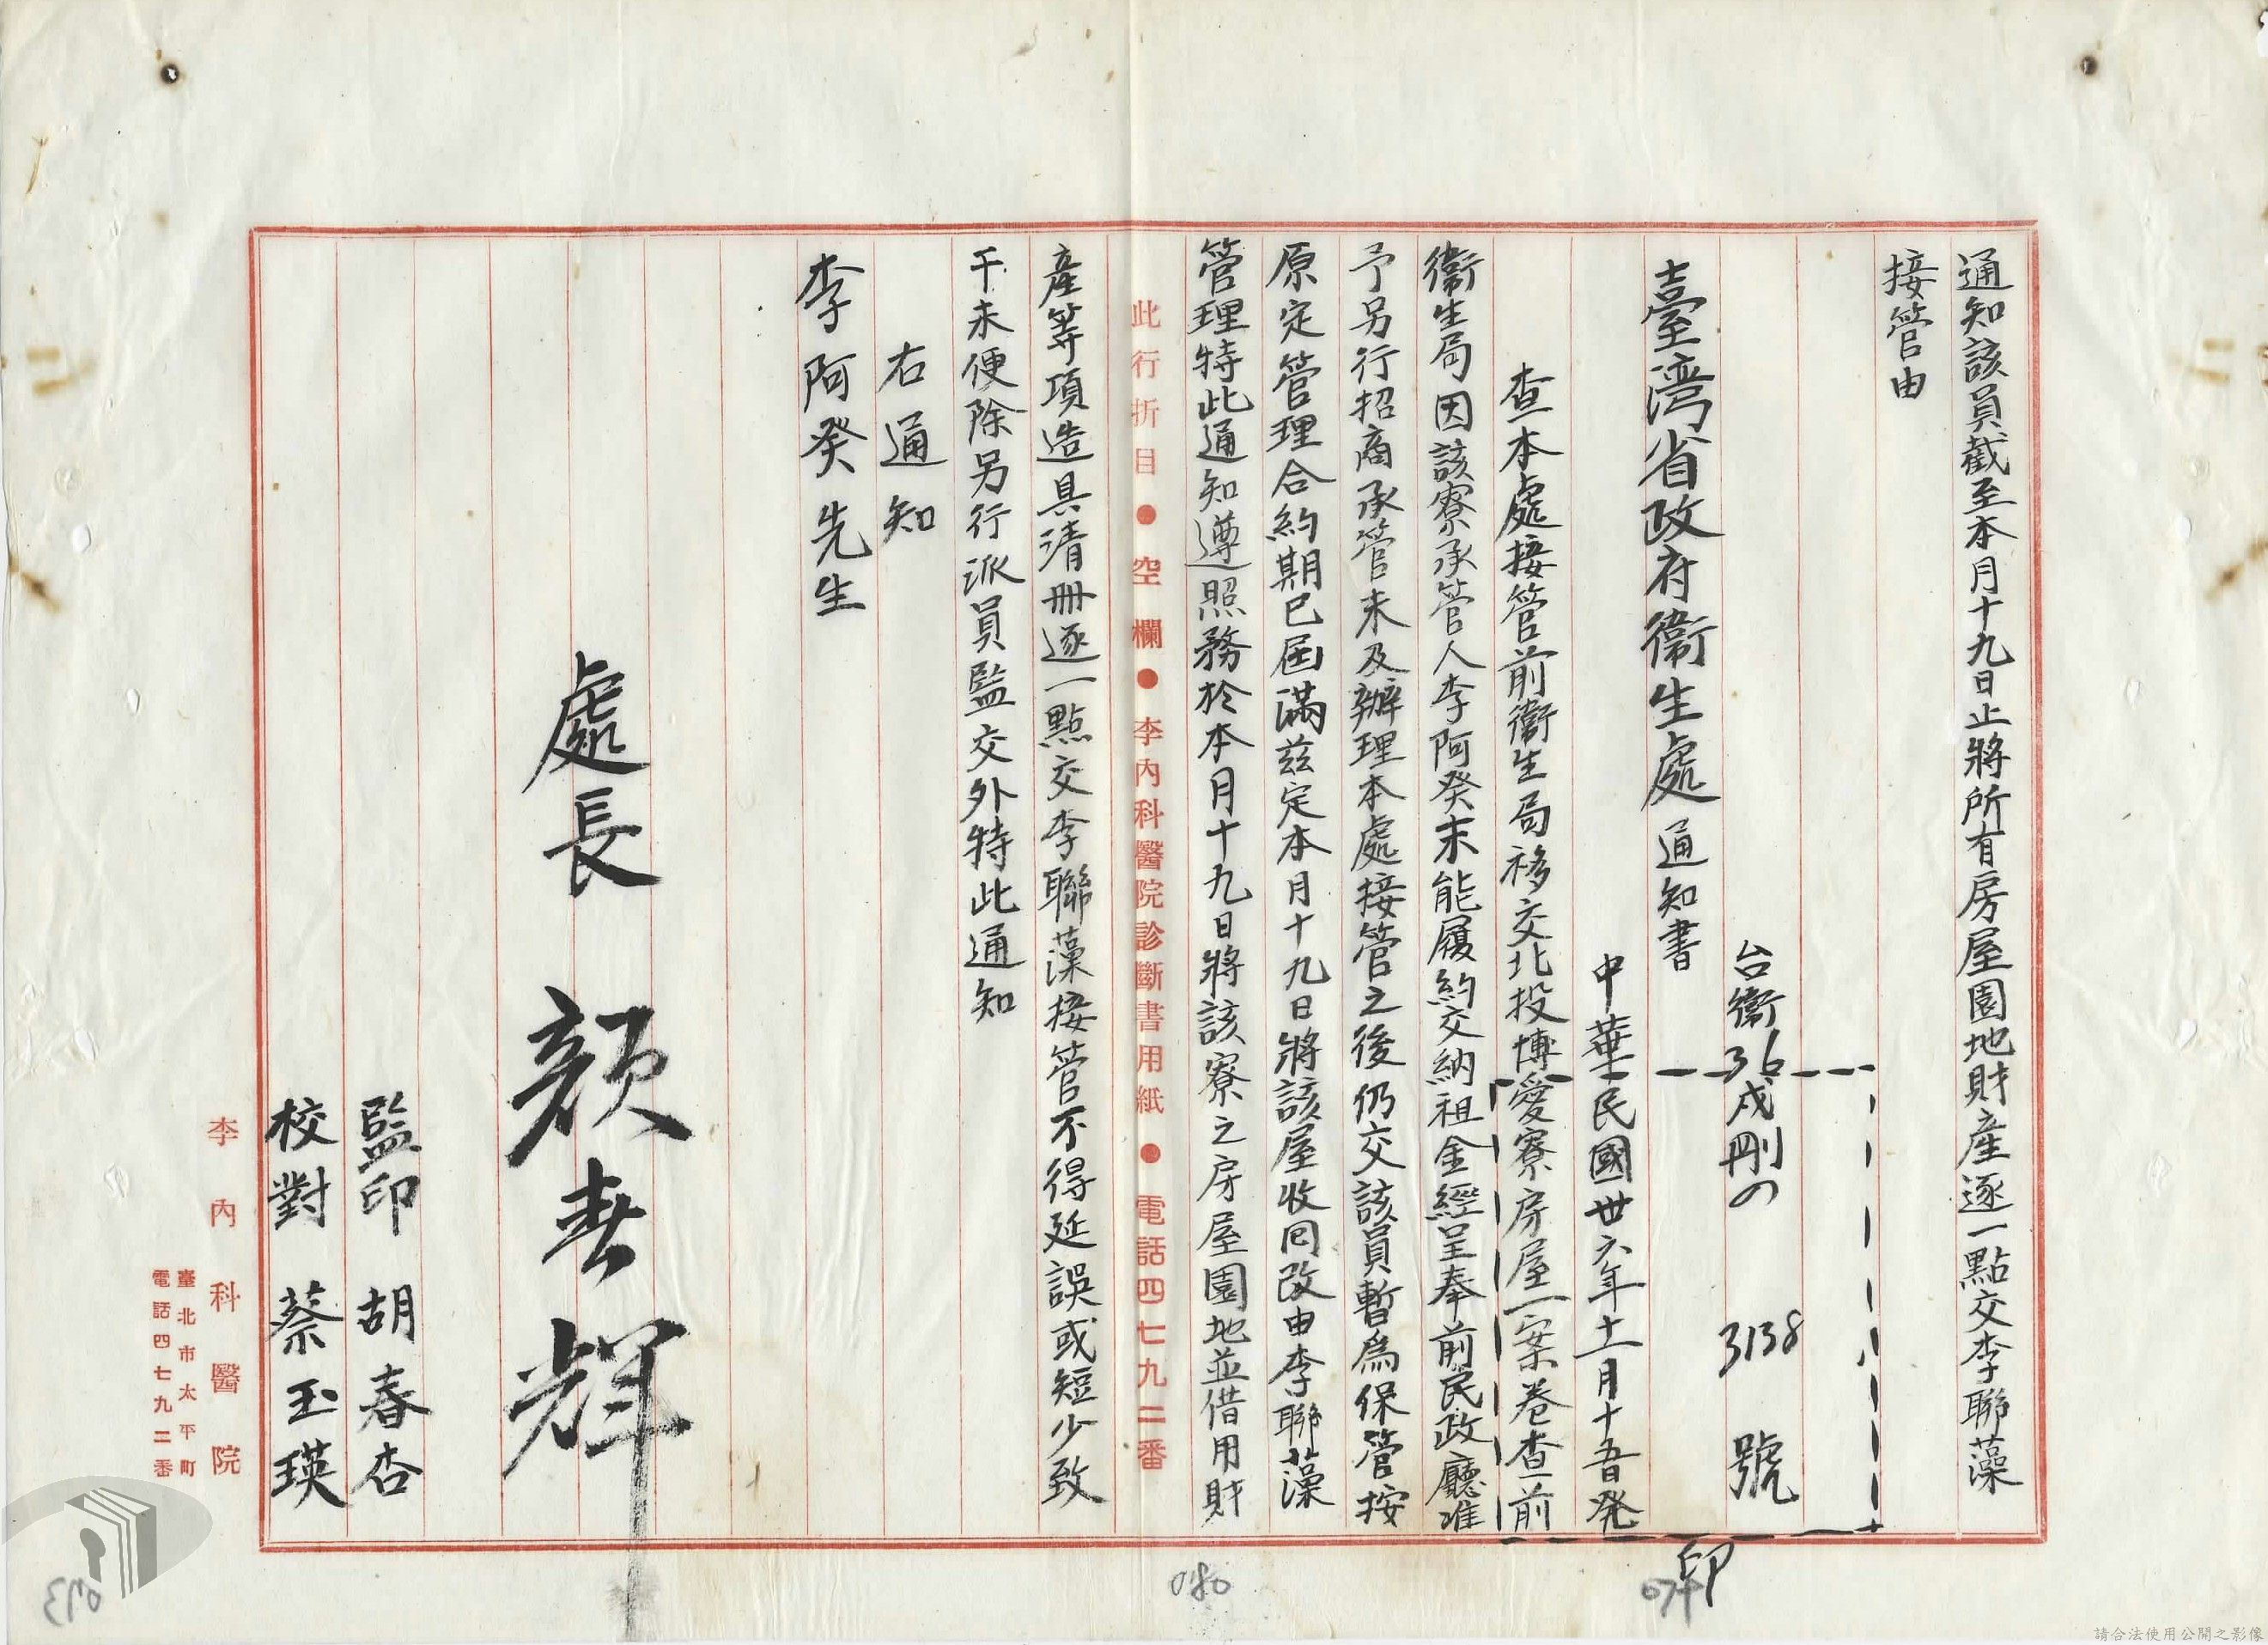 通知該員截至本月十九日止將所有房屋園地財産逐一點交李聯藻
接管由
台衞36戍剛の 3138 號
臺湾省政府衞生處通知書
中華民國丗六年十一月十五日発
查本處接管前衞生局移交北投博愛寮房屋一案卷查前
衞生局因該寮承管人李阿癸未能履約交納租金經呈奉前民政廳准
予另行招商承管未及辦理本處接管之後仍交該員暫爲保管按
原定管理合約期已届滿兹定本月十九日將該屋收回改由李聯藻
管理特此通知遵照務於本月十九日將該寮之房屋園地並借用財
此行折目●空欄●李內科醫院診斷書用紙●電話四七九二番
産等項造具清册逐一點交李聯藻接管不得延誤或短少致
干未便除另行派員監交外特此通知
右通知
李阿癸先生
處長 顏春輝
監印 胡春杏
校對 蔡玉瑛
李內科醫院
臺北市太平町
電話四七九二番
印
074
080
073
請合法使用公開之影像